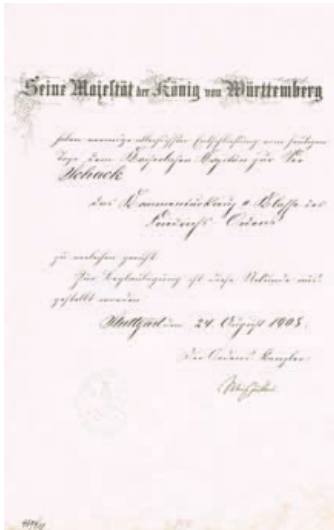 Seine Majestät der König von Württemberg
haben vermöge allerhöchster Entschließung vom heutigen
Tage dem Kaiserlichen Kapitän zur See
Schack
das Kommenturkreuz Klasse des
Friedrichs Ordens
zu verleihen geruht.
Zur Beglaubigung ist diese Urkunde aus
gestellt worden
Stuttgart den 24. August
Der Ordens Kanzler